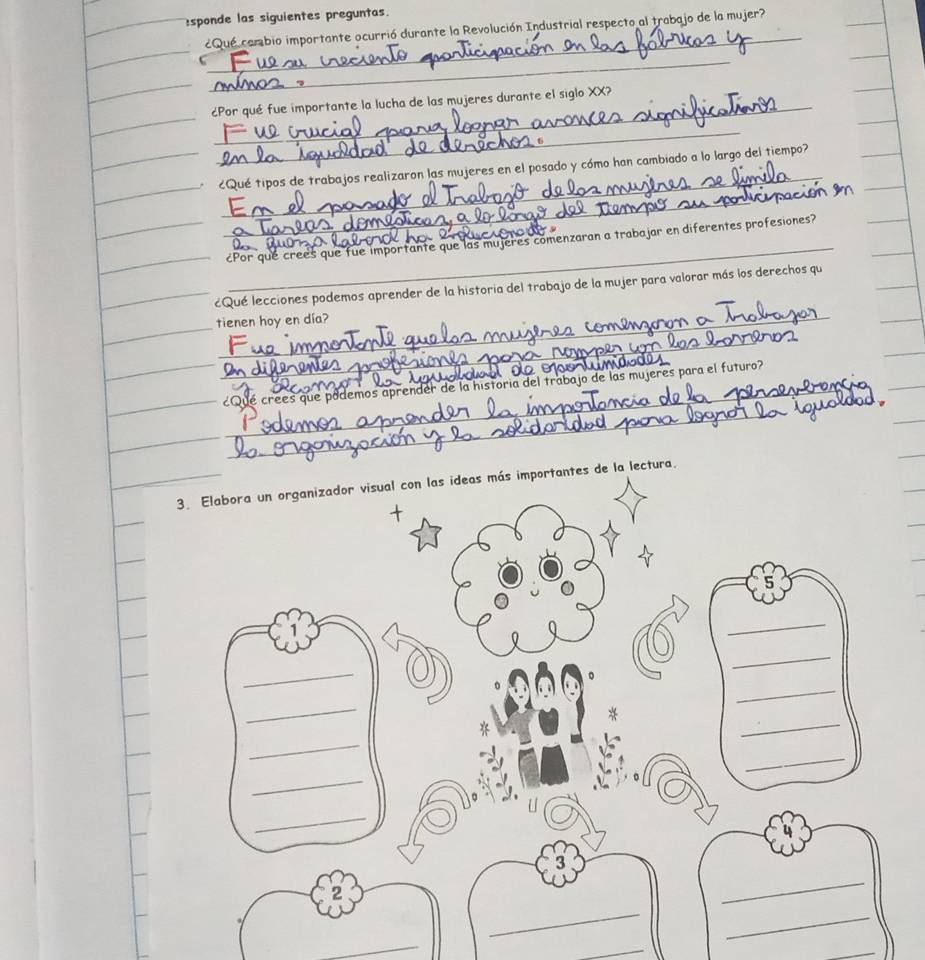 sponde las siguientes preguntas.
¿Qué cambio importante ocurrió durante la Revolución Industrial respecto al trabajo de la mujer?
Fue su creciento participación en las fábricas y
minos.
¿Por qué fue importante la lucha de las mujeres durante el siglo XX?
Fue crucial para lograr avances significativos
en la igualdad de derechos.
¿Qué tipos de trabajos realizaron las mujeres en el pasado y cómo han cambiado a lo largo del tiempo?
En el pasado el Trabajo de las mujeres se limila
a Tareas domesticas, a lo largo del Tiempo su participación en
la fuerza laboral ha evolucionado.
¿Por qué crees que fue importante que las mujeres comenzaran a trabajar en diferentes profesiones?
¿Qué lecciones podemos aprender de la historia del trabajo de la mujer para valorar más los derechos qu
tienen hoy en día?
Fue importante que las mujeres comenzaron a Trabajar
en diferentes profesiones para romper con las barreras
y alcanzar la igualdad de oportumidades
¿Qué crees que podemos aprender de la historia del trabajo de las mujeres para el futuro?
Podemos aprender la importancia de la perseverancia
la organización y la solidaridad para lograr la igualdad.
3. Elabora un organizador visual con las ideas más importantes de la lectura.
5
1
4
3
2